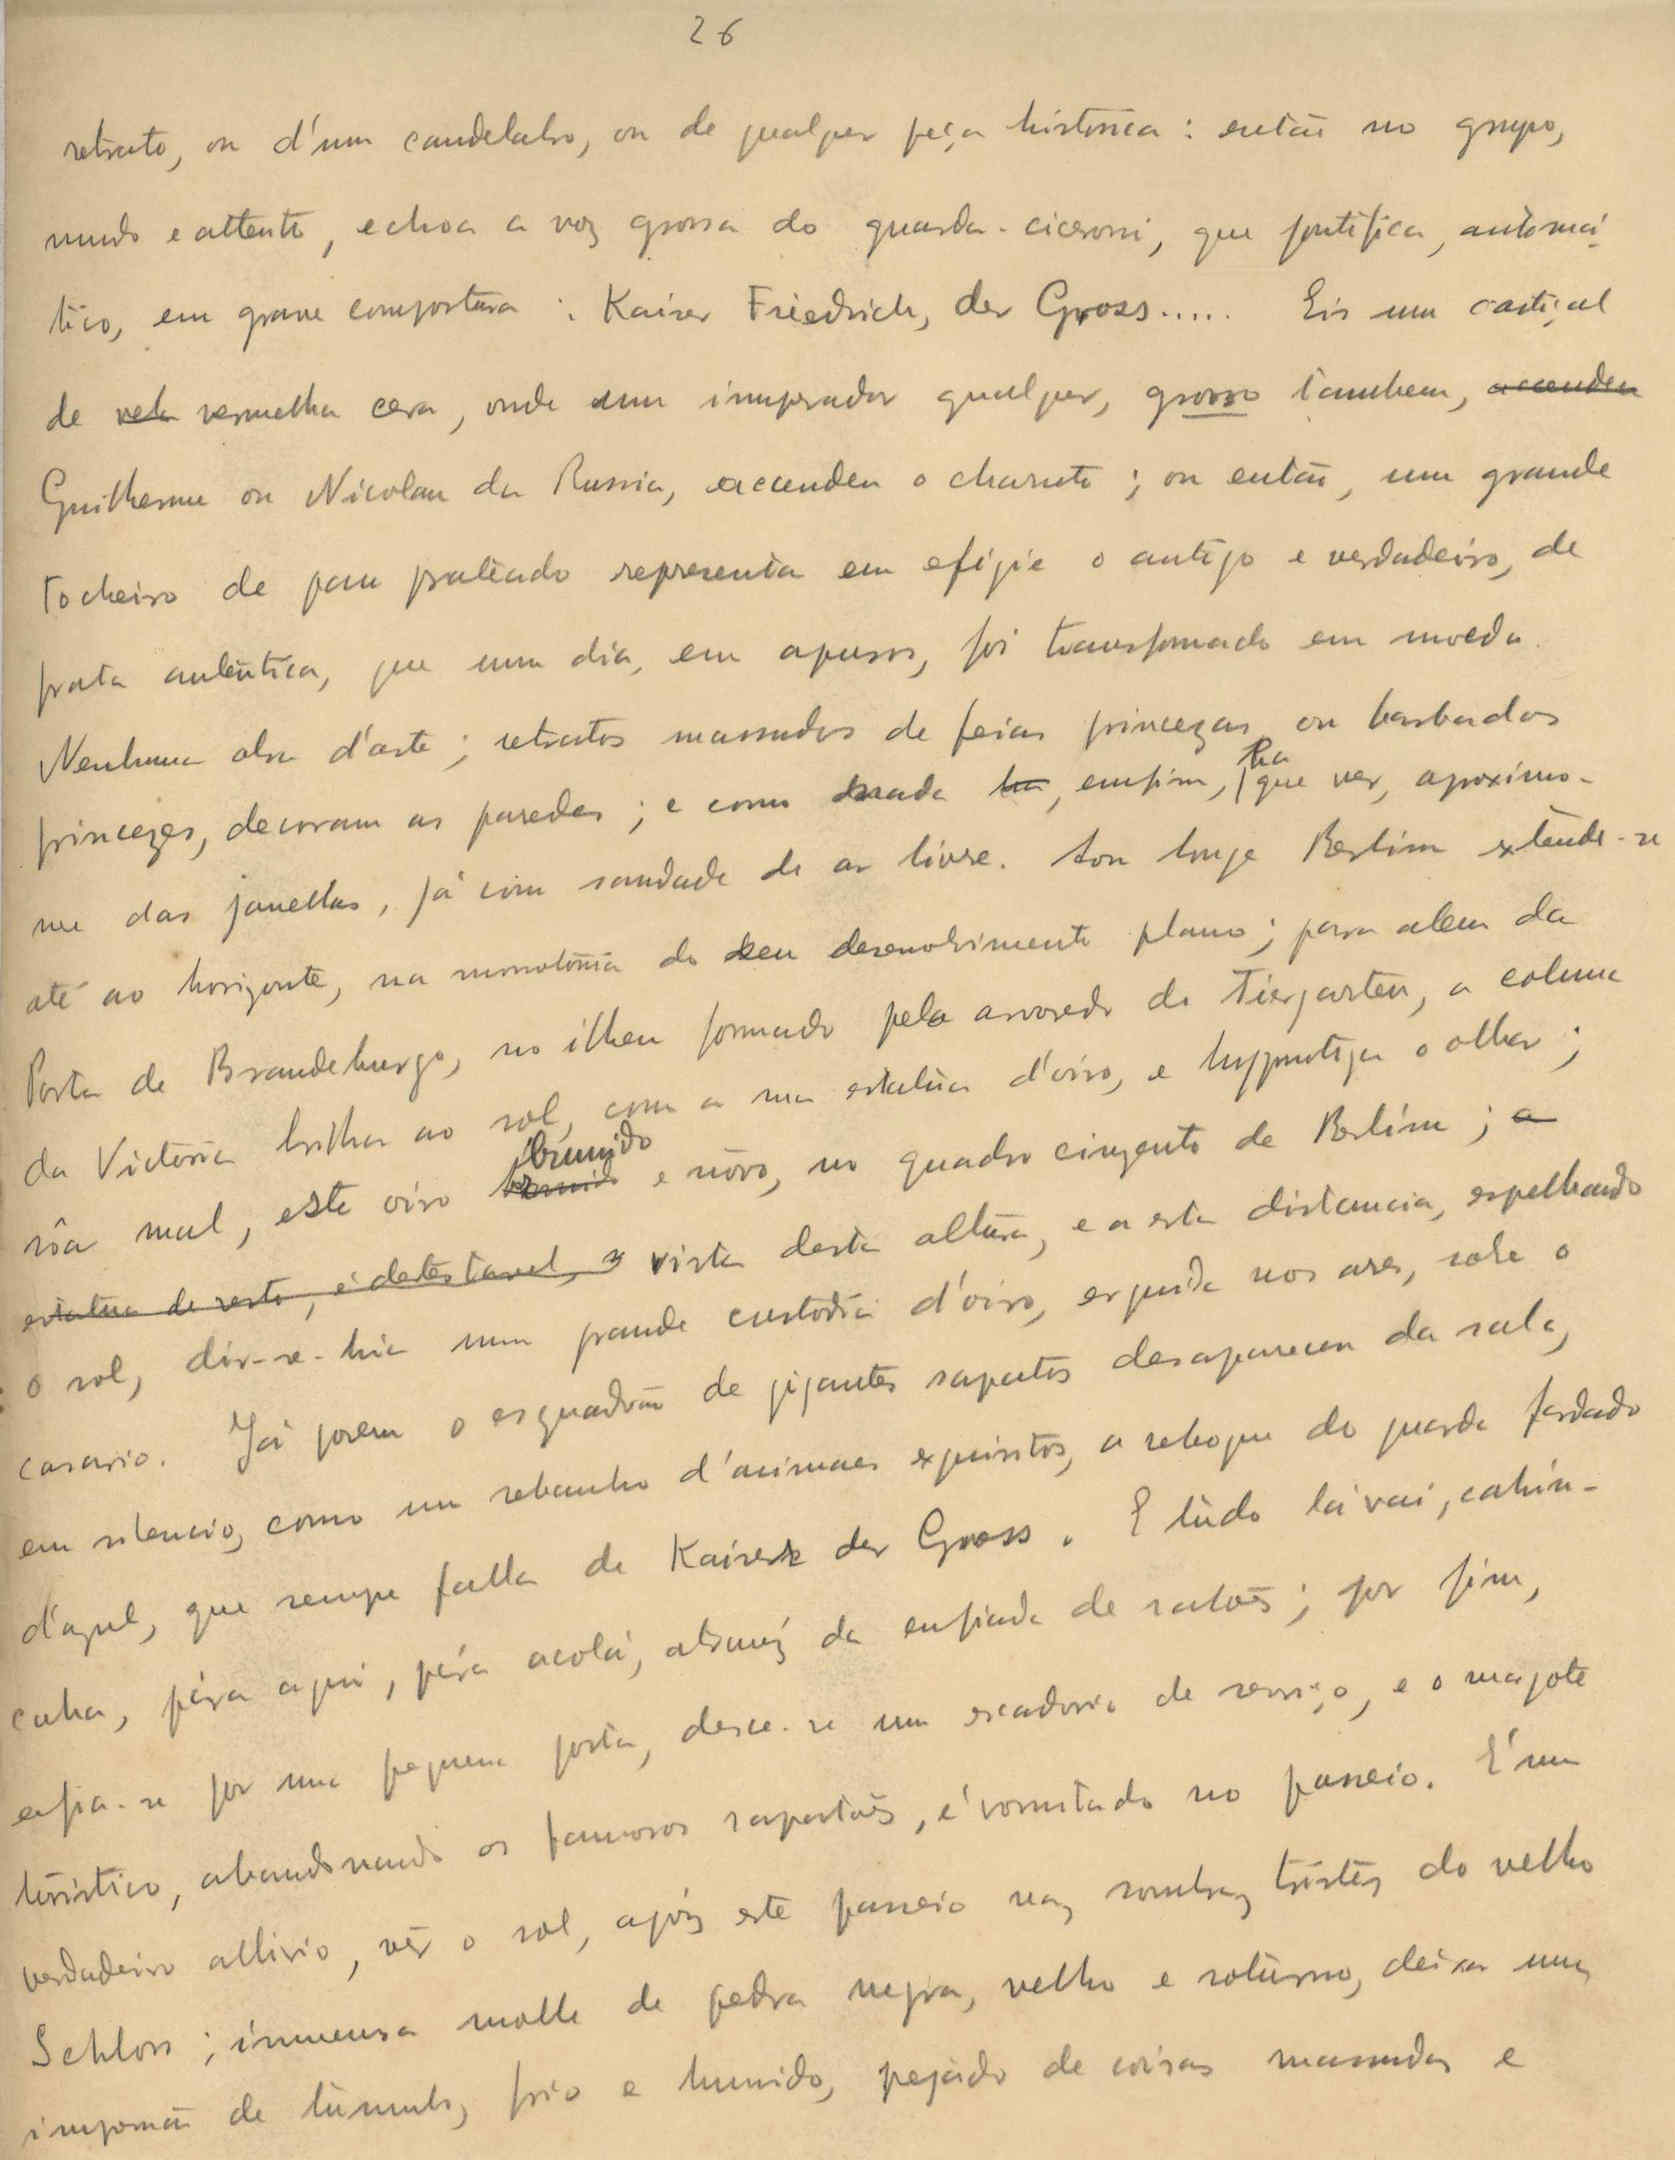 26
retrato, ou d'um candelabro, ou de qualquer peça historica: então no grupo,
mudo e attento, echoa a voz grossa do guarda-ciceroni, que pontifica, automá-
tico, em grave compostura: Kaiser Friedrich, der Gross..... Eis um castiçal
de vela vermelha cera, onde um imperador qualquer, grosso tambem, accendeu
Guilherme ou Nicolau da Russia, accendeu o charuto; ou então, um grande
tocheiro de pau prateado representa em efigie o antigo e verdadeiro, de
prata autêntica, que um dia, em apuros, foi transformado em moeda.
Nenhuma obra d'arte; retratos massudos de feias princezas ou barbados
princezes, decoram as paredes; e como nada ha, emfim, ha que ver, aproximo-
me das janellas, já com saudade do ar livre. Ao longe Berlim extende-se
até ao horizonte, na monotonia do seu desenvolvimento plano; para alem da
Porta de Brandeburgo, no ilheu formado pelo arvoredo do Tiergarten, a coluna
da Victoria brilha ao sol, com a sua estatua d'oiro, e hypnotiza o olhar;
sôa mal, este oiro brunido e nôvo, no quadro cinzento de Berlim; a
estatua de resto, é detestavel, e vista desta altura, e a esta distancia, espelhando
o sol, dir-se-hia uma grande custodia d'oiro, erguida nos ares, sobre o
casario. Já porem o esquadrão de gigantes sapatos desaparecem da sala,
em silencio, como um rebanho d'animaes exquisitos, a reboque do guarda fardado
d'azul, que sempre falla de Kaiser der Gross. E tudo lá vai, cahin-
caha, pára aqui, pára acolá, atravez da enfiada de salões; por fim,
enfia-se por uma pequena porta, desce-se uma escadaria de serviço, e o magote
túristico, abandonando os famosos sapatões, é vomitado no passeio. É um
verdadeiro allivio, vêr o sol, após este passeio nas sombras tristes do velho
Schloss; immensa molle de pedra negra, velho e soturno, deixa uma
impressão de tumulo, frio e humido, pejado de coisas massudas e